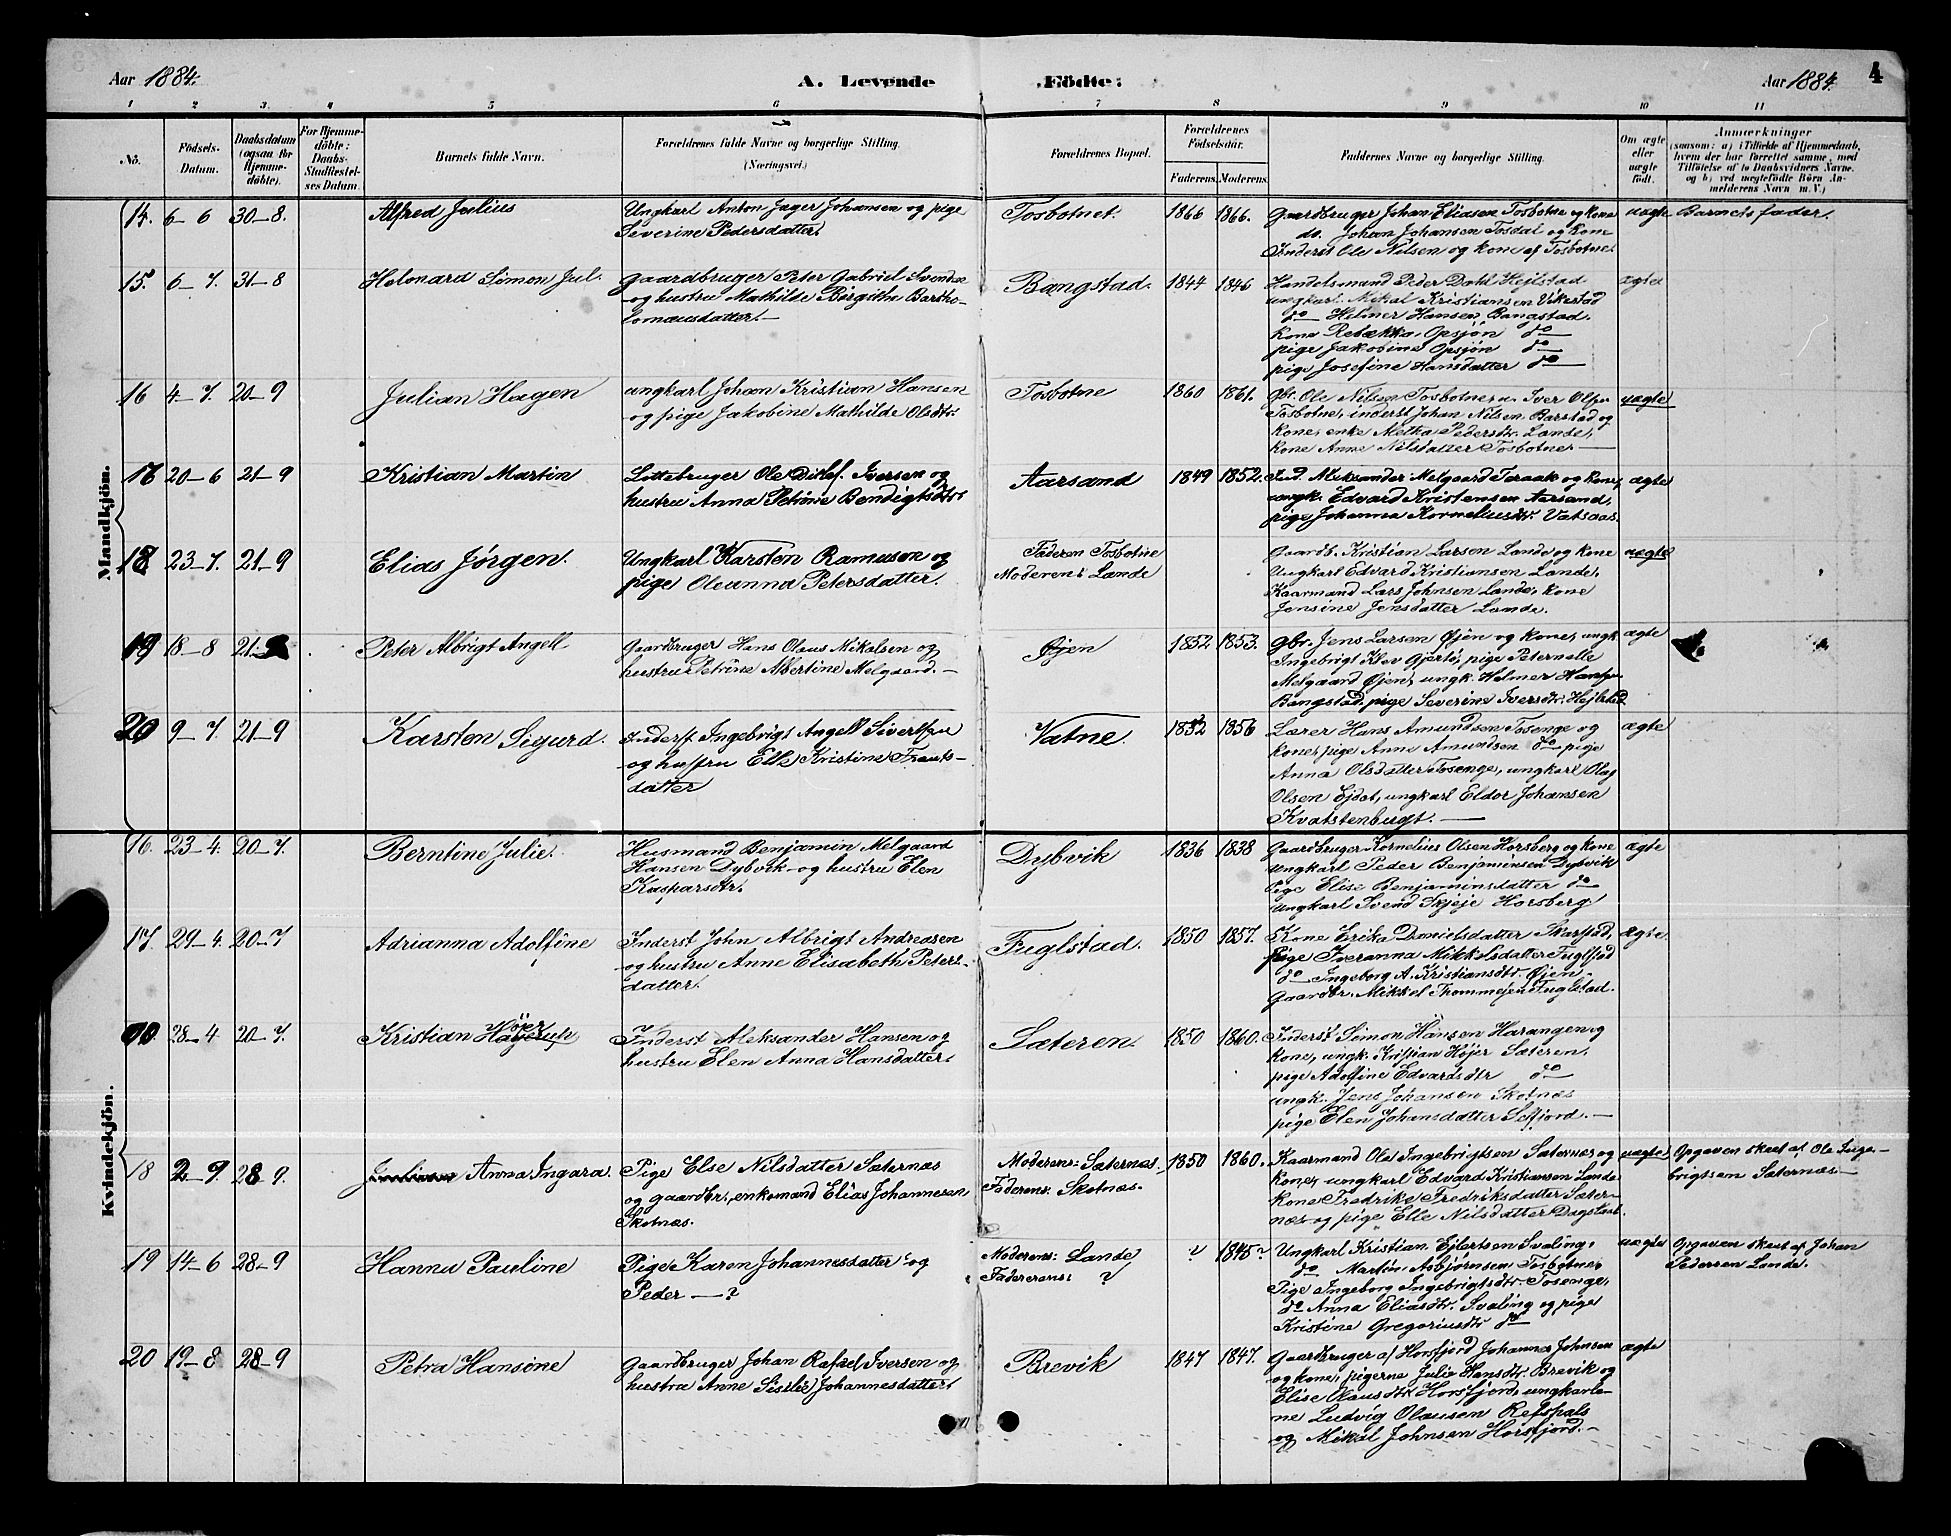 Aar 1884. A. Levende Födte: Aar 1884. 4
1 2 3 4 5 6 7 8 9 10 11
No. Födsels-Datum. Daabsdatum (ogsaa for Hjemmedöbte). For Hjemmedöbte: Daabs-Stadfæstelses Datum. Barnets fulde Navn. Forældrenes fulde Navne og borgerlige Stilling. (Næringsvei.) Forældrenes Bopæl. Forældrenes Födselsaar. Faderens. Moderens. Faddernes Navne og borgerlige Stilling. Om ægte eller uægte födt. Anmærkninger
(saasom: a) i Tilfælde af Hjemmedaab, hvem der har forrettet samme, med Tilföielse af to Daabsvidners Navne, og b) ved uægtefödte Börn Anmelderens Navn m. V.)
Mandkjön.
14. 6–6 30–8. Alfred Julius
Ungkarl Anton Jager Johansen og pige
Severine Pedersdatter.
Tosbotnet. 1866 1866.
Gaardbruger Johan Eliasen Tosbotne og kone
do. Johan Johansen Tosdal og kone
Inderst Ole Nilsen og kone af Tosbotne.
uægte Barnets fader.
15. 6–7. 31–8 Helonard Simon Jul.
gaardbruger Peter Gabriel Svendsen
og hustru Mathilde Birgithe Bartho-
lomæusdatter.—
Bangstad. 1844 1846
Handelsmand Peder Dahl Hejlstad
ungkarl. Mikal Kristiansen Vikestad
do Helmer Hansen Bangstad.
kone Rebækka Opsjøn do
pige Jakobine Opsjön do
pige Josefine Hansdatter do
ægte
16 4–7. 20–9 Julian Hagen
ungkarl Johan Kristian Hansen
og pige Jakobine Mathilde Olsdtr.
Tosbotne 1860 1861.
Gbr. Ole Nilsen Tosbotne, Iver Olsen
Tosbotne, inderst Johan Nilsen Barstad og
kone, enke Metha Pedersdtr. Lande,
kone Anne Nilsdatter Tosbotne.—
uægte
17 20–6 21–9 Kristian Martin
Lottebruger Ole Ditlef Iversen og
hustru Anna Petrine Bendigtsdtr
Aarsand 1849 1852.
Ind. Aleksander Melgaard Teraak og kone,
ungk. Edvard Kristensen Aarsand,
pige Johanna Korneliusdtr. Vatsaas.
ægte
18 23–7. 21–9 Elias Jørgen.
Ungkarl Karsten Ramusen og
pige Oleanna Petersdatter.
Faderen Tosbotne
Moderen: Lande
Gaardb. Kristian Larsen Lande og kone
Ungkarl Edvard Kristiansen Lande,
Kaarmand Lars Johnsen Lande, kone
Jensine Jensdatter Lande.
uægte
19 18–8 21– Peter Albrigt Angell
Gaardbruger Hans Olaus Mikelsen og
hustru Petrine Albertine Melgaard.—
Øjen 1852 1853.
Gbr. Jens Larsen Øjen og kone, ungk
Ingebrigt Klev Gjertø, pige Peternelle
Melgaard Øjen, ungk. Helmer Hansen
Bangstad, pige Severine Iversdtr. Hejlstad
ægte
20 9–7 21–9 Karsten Sigurd.
Inderst Ingebrigt Angell Sivertsen
og hustru Else Kristine Frants-
datter
Vatne. 1852 1856
Lærer Hans Amundsen Tosenge og
kone, pige Anne Amundsen do pige
Anna Olsdatter Tosenge, ungkarl Olaf
Olsen Ejdet, ungkarl Eldor Johansen
Kvatstenbugt.—
ægte
Kvindekjön.
16. 23–4. 20–7. Berntine Julie.
Husmand Benjamin Melgaard
Hansen Dybvik og hustru Elen
Kasparsdtr.
Dybvik 1836 1838
Gaardbruger Kornelius Olsen Horsberg og kone
ungkarl Peder Benjaminsen Dybvik
Pige Elise Benjaminsdatter do
ungkarl Svend Skjeje Horsberg
ægte
17. 29–4. 20–7 Adrianna Adolfine
Inderst John Albrigt Andreasen
og hustru Anne Elisabeth Peters-
datter.
Fuglstad. 1850 1857.
Kone Erika Danielsdatter Skarstad,
Pige Iveranna Mikkelsdatter Fuglstad
do Ingeborg A. Kristiansdtr. Øjen
Gaardbr. Mikkel Thommesen Fuglstad.
Ægte.
28–4 20–7. Kristian Højer
Inderst Aleksander Hansen og
hustru Elen Anna Hansdatter
Sæteren. 1850 1860.
Inderst Simon Hansen Harangen og
kone, ungk. Kristian Højer Sæteren,
pige Adolfine Edvardsdtr do
ungk. Jens Johansen Skotnæs
pige Elen Johansdatter Selfjord.—
18 2–9. 28–9. Anna Ingara.
Pige Else Nilsdatter Sæternæs
og gaardbr. enkemand Elias Johannesen
Skotnæs.
Moderens: Sæternæs.
Faderens: Skotnæs.
1850 1860.
Kaarmand Ole Ingebrigtsen Sæternes og
kone, ungkarl Edvard Kristiansen Lande
kone Fredrike Fredriksdatter Sæter-
næs og pige Elle Nilsdatter Dagslaat.
uægte Opgaven skeet af Ole Inge-
brigtsen Sæternæs—
19 14–6 28–9 Hanna Pauline
Pige Karen Johannesdatter og
Peder —?
Moderens: Lande
Faderens: ?
? 1845?
Ungkarl Kristian Ejlertsen Svaling,
do Martin Asbjørnsen Tosbotne,
Pige Ingeborg Ingebrigtsdtr. Tosenge,
do Anna Eliasdtr. Svaling og pige
Kristine Gregoriusdtr do
uægte Opgaven skeet af Johan
Pedersen Lande.
20 19–8 28–9 Petra Hansine
Gaardbruger Johan Rafael Iversen og
hustru Anne Sisilie Johannesdatter
Brevik 1847 1847.
Gaardbruger af Horsfjord Johannes Johnsen
og kone, pigerne Julie Hansdtr. Brevik og
Elise Olausdtr. Horsfjord, ungkarle-
ne Ludvig Olausen Refspals
og Mikal Johnsen Horsfjord.—
ægte